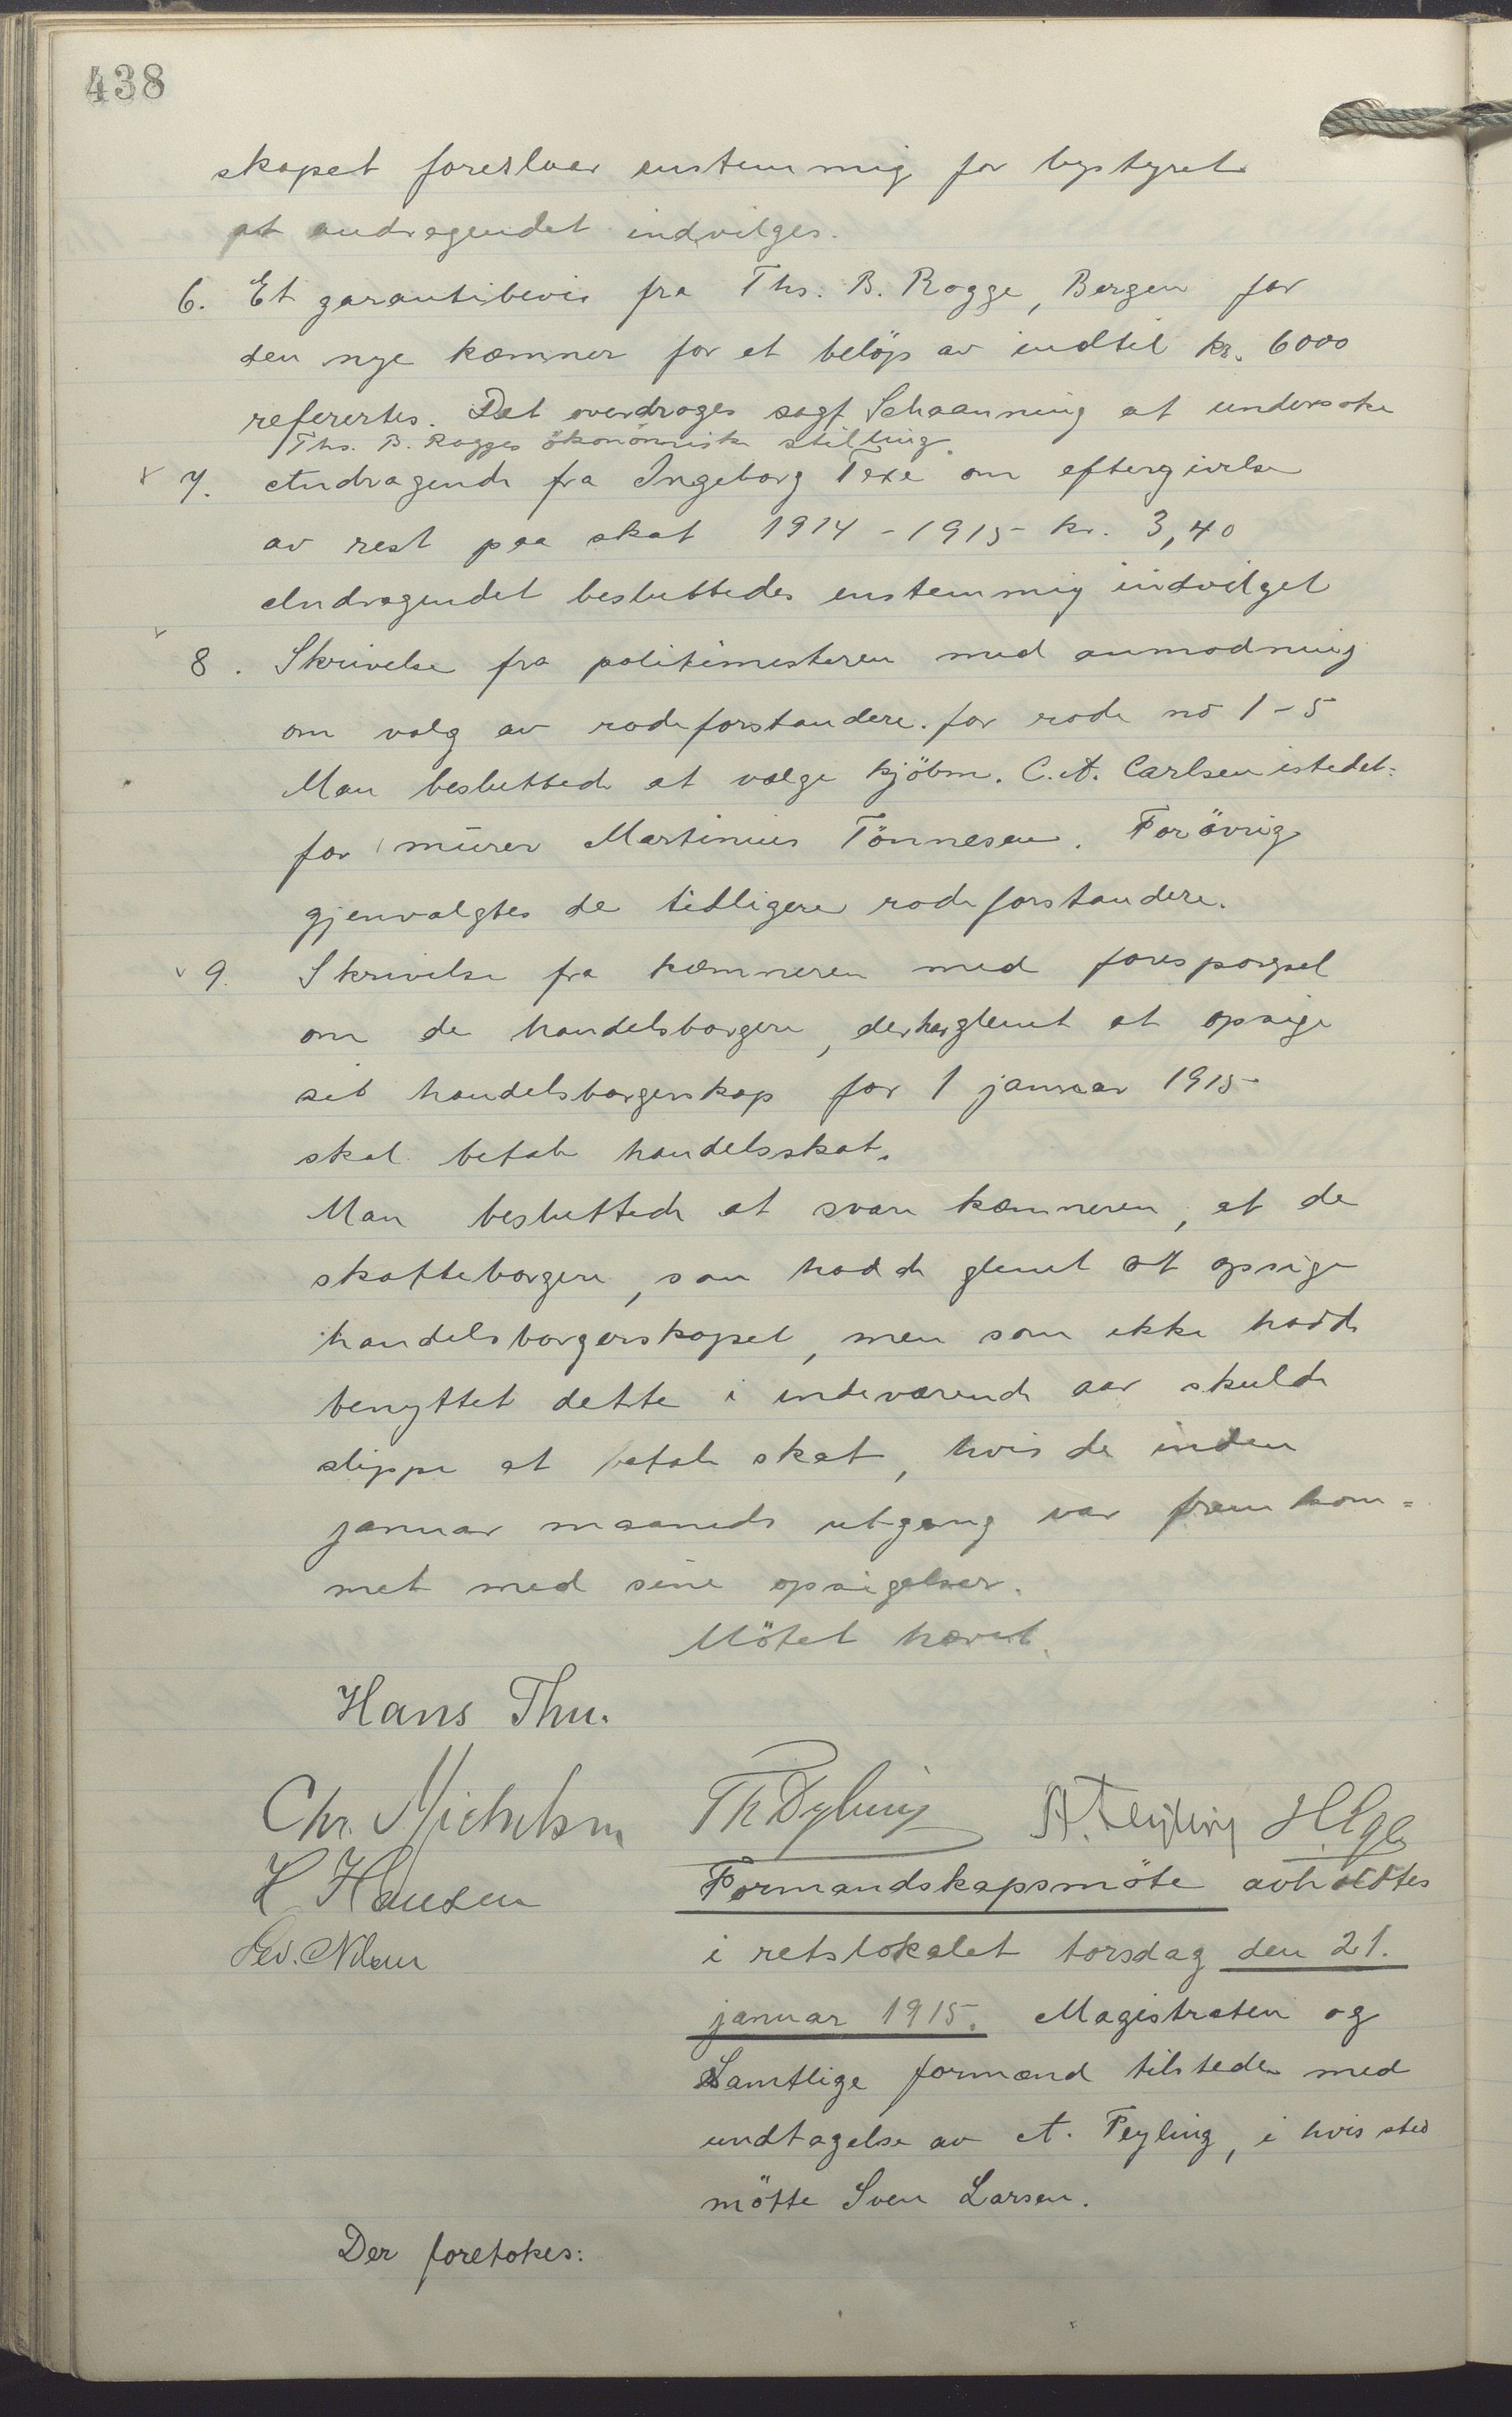 438
skapet foreslaar enstemmig for bystyret
at andragendet indvilges.
6. Et garantibevis fra Ths. B. Rogge, Bergen for
den nye kæmner for et belöp av indtil kr. 6000
referertes. Det overdroges sagf. Schaanning at undersøke
Ths. B. Rogges ökonomiske stilling.
v 7. Andragende fra Ingeborg Texe om eftergivelse
av rest paa skat 1914-1915 kr. 3,40
Andragendet besluttedes enstemmig indvilget
v 8. Skrivelse fra politimesteren med anmodning
om valg av rodeforstandere for rode no 1-5
Man besluttede at vælge kjöbm. C.A. Carlsen istedet=
for murer Martinius Tönnesen. Forövrig
gjenvalgtes de tidligere rodeforstandere.
v 9. Skrivelse fra kæmneren med forespørgsel
om de handelsborgere, der har glemt at opsige
sit handelsborgerskap for 1 januar 1915
skal betale handelsskat.
Man besluttede at svare kæmneren, at de
skatteborgere, som hadde glemt at opsige
handelsborgerskapet, men som ikke hadde
benyttet dette i indeværende aar skulde
slippe at betale skat, hvis de inden
januar maaneds utgang var fremkom=
met med sine opsigelser.
Mötet hævet.
Hans Thu.
Chr. Michelsen Th Dyring A. Feyling H. Elge
H Hansen
Formandskapsmöte avholdtes
i retslokalet torsdag den 21.
januar 1915. Magistraten og
Samtlige formænd tilstede med
undtagelse av A. Feyling, i hvis sted
mötte Sven Larsen.
Der foretokes: